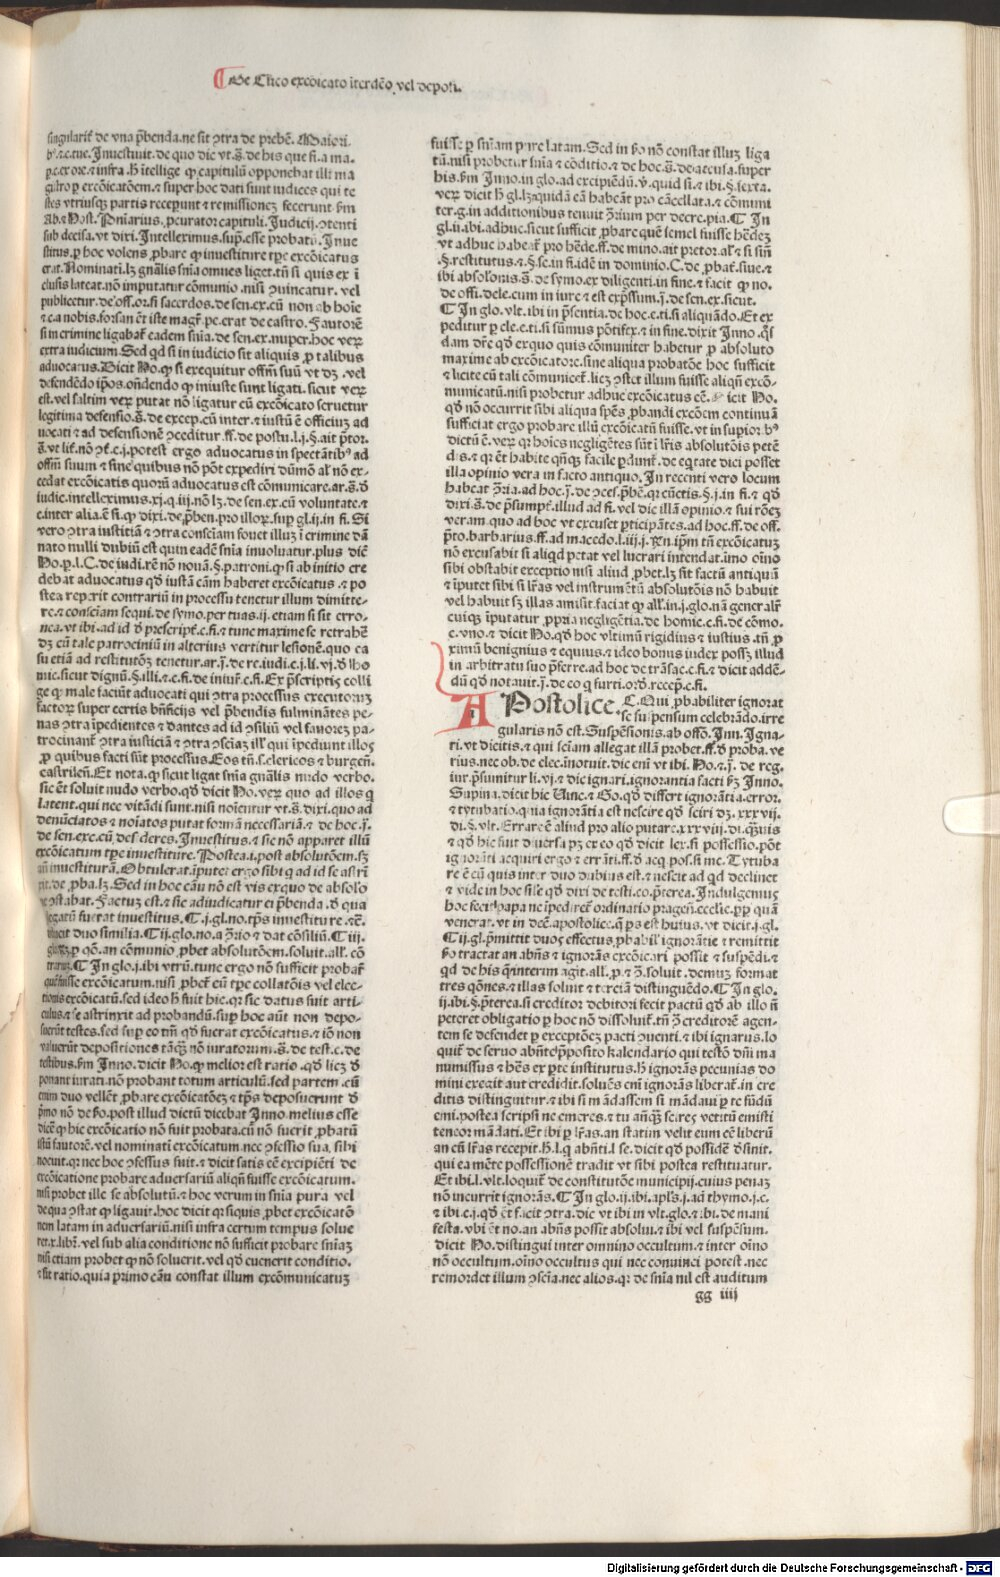 De cl'ico excōicato īterdēo vel deposi.
singularit̄ de vna p̄benda. ne sit ɔtra de prebē. Maiori
Inuestiuit. de quo dic vt.s̄. de his que fi. a ma.
p. c. ex ore. ⁊ infra. h̄ ītellige ꝙ capitulū opponebat illi ma
gistro ꝑ excōicatōem. ⁊ super hoc dati sunt iudices qui te
stes vtriusqꝫ partis receperunt ⁊ remissionez fecerunt. s̄m
Ab. ⁊ Host. Pn̄iarius, ꝓcurator capituli. Iudicij. ɔtenti
sub decisa. vt dixi. Intelleximus. supͣ. esse probatū. Inue
stitus. ꝑ hoc volens ꝓbare ꝙ inuestiture tꝑe excōicatus
erat. Nominati. lꝫ gn̄alis sn̄ia omnes liget. tn̄ si quis ex ī
clusis lateat. nō imputatur cōmunio. nisi ɔuincatur. vel
publicetur. de off. or. si sacerdos. de sen. ex. cū non ab hoīe
⁊ c. a nobis. forsan ēt iste magr̄. pe. erat de castro. Fautorē
si in crimine ligabat̄ eadem sn̄ia. de sen. ex. nuper. hoc veꝝ
extra iudicium. Sed qd si in iudicio sit aliquis ꝓ talibus
aduocatus. Dicit Ho. ꝙ si exequitur offm̄ suū vt dꝫ. vel
defendēdo ip̄os. on̄dendo ꝙ iniuste sunt ligati. sicut veꝝ
est. vel saltim veꝝ putat nō ligatur cū excōicato seruetur
legitima defensio. s̄. de excep. cū inter. ⁊ iustū ē officiuꝫ ad
uocati ⁊ ad defensionē ɔceditur. ff. de postu. l. j. §. ait p̄tor.
s̄. vt lit̄. nō ɔt̄. c. j. potest ergo aduocatus in spectātibꝰ ad
offm̄ suum ⁊ sine quibus nō pōt expediri dūmō al̄ nō ex-
cedat excōicatis quoꝝ aduocatus est cōmunicare. ar. s̄. d̄
iudic. intelleximus. xj. q. iij. nō lꝫ. de sen. ex. cū voluntate. ⁊
c. inter alia. ē si. ꝙ dixi. de p̄ben. pro illoꝝ. supͣ gl. ij. in fi. Si
vero ɔtra iustitiā ⁊ ɔtra consciam fouet illuꝫ ī crimine dā
nato nulli dubiū est quin eadē sn̄ia inuoluatur. plus dic̄
Ho. ꝑ. l. C. de iudi. rē nō nouā. §. patroni. ꝙ si ab initio cre
debat aduocatus qd iustā cām haberet excōicatus. ⁊ po
stea reperit contrariū in processu tenetur illum dimitte-
re. ⁊ consciam sequi. de symo. per tuas. ij. etiam si sit erro-
nea. vt ibi. ad id d̄ prescript̄. c. fi. ⁊ tunc maxime se retrahē
dꝫ cū tale patrociniū in alterius vertitur lesionē. quo ca
su etiā ad restitutōꝫ tenetur. ar. j̄. de re. iudi. c. j. li. vj. d̄ ho
mic. sicut dignū. §. illi. ⁊ c. fi. de iniur̄. c. fi. Ex p̄scriptis colli
ge ꝙ male faciūt aduocati qui ɔtra processus executorūꝫ
factoꝝ super certis bn̄ficijs vel p̄bendis fulminātes pe-
nas ɔtra īpedientes ⁊ dantes ad id ɔsiliū vel fauorez pa-
trocinant̄ ɔtra iusticiā ⁊ ɔtra ɔsciaꝫ ill'. qui īpediunt illos
ꝓ quibus facti sūt processus. Eos tn̄. s. clericos ⁊ burgeñ.
castrileñ. Et nota. ꝙ sicut ligat sn̄ia gn̄alis nudo verbo.
sic ēt soluit nudo verbo. qd dicit Ho. veꝝ quo ad illos ꝗ
latent. qui nec vitādi sunt. nisi noīentur vt. s̄. dixi. quo ad
denūciatos ⁊ noīatos putat formā necessariā. ⁊ de hoc. j̄.
de sen. exc. cū desideres. Inuestitus. ⁊ sic nō apparet illū
excōicatum tꝑe inuestiture. Postea. i. post absolutōem. sꝫ
an̄ inuestiturā. Obtulerat. īputet ergo sibi ꝗ ad id se astrī
xit. de ꝓba. lꝫ. Sed in hoc cāu nō est vis exquo de absolo
ve ɔstabat. Factuꝫ est. ⁊ sic adiudicatur ei p̄benda. d̄ qua
legatū fuerat inuestitus. ¶. j. gl. no. tp̄s inuestiture. ⁊c̄.
ducit duo similia. ¶ ij. glo. no. a ɔ̄rio ⁊ dat cōsiliū. ¶ iij.
glosa. ꝑ qō. an cōmunio ꝓbet absolutōem. soluit. all. cō
trariuꝫ. ¶ In glo. j. ibi vtrū. tunc ergo nō sufficit probat̄
que fuisse excōicatum. nisi ꝓbet̄ eū tꝑe collatōis vel elec-
tionis excōicatū. sed ideo h̄ fuit hic. qr sic datus fuit arti-
culus. ⁊ se astrinxit ad probandū. suꝑ hoc aūt non depo-
suerūt testes. sed suꝑ eo tm̄ qd fuerat excōicatus. ⁊ iō non
valuerūt depositiones tāqꝫ nō iuratorum. s̄. de test. c. de
testibus. s̄m Inno. dicit Ho. ꝙ melior est ratio. qd licꝫ d̄
ponant iurati. nō probant totum articulū. sed partem. cū
enim duo vellēt ꝓbare excōicatōeꝫ ⁊ tp̄s deposuerunt d̄
p̄mo nō de s̄o. post illud dictū dicebat Inno. melius esse
dicē ꝙ hic excōicatio nō fuit probata. cū nō fuerit ꝓbatū
istū fautorē. vel nominati excōicatum. nec ɔfessio sua, sibi
nocuit. qr nec hoc ɔfessus fuit. ⁊ dicit satis eē excipiēti de
excōicatione probare aduersariū aliqn̄ fuisse excōicatum.
nisi probet ille se absolutū. ⁊ hoc verum in sn̄ia pura vel
de qua ɔstat ꝙ ligauit. hoc dicit qr siquis ꝓbet excōicatō
nem latam in aduersariū. nisi infra certum tempus solue
ret. x. libr̄. vel sub alia conditione nō sufficit probare sn̄iaꝫ
nisi etiam probet ꝙ nō soluerit. vel qd euenerit conditio.
⁊ sit ratio. quia primo cāu constat illum excōmunicatuꝫ
fuisse ꝑ sn̄iam pure latam. Sed in s̄o nō constat illuꝫ liga
tū. nisi probetur sn̄ia ⁊ cōditio. ⁊ de hoc. s̄. de accusa. super
his. s̄m Inno. in glo. ad excipiēdū. v̄. quid si. ⁊ ibi. §. sexta.
veꝝ dicit h̄ gl. lꝫ quidā eā habeāt pro cācellata. ⁊ cōmuni
ter. g. in additionibus tenuit ɔ̄rium per decre. pia. ¶ In
gl. ii. ibi. adhuc. sicut sufficit ꝓbare quē semel fuisse hēdeꝫ
vt adhuc habeat̄ pro hēde. ff. de mino. ait pretor. al' ⁊ si sin̄
. §. restitutus. ⁊ §. sc. in fi. idē in dominio. C. de ꝓbat̄. siue. ⁊
ibi absolonis. s̄. de symo. ex diligenti. in fine. ⁊ facit ꝙ no.
de offi. dele. cum in iure ⁊ est exp̄ssum. j̄. de sen. ex. sicut.
¶ In glo. vlt. ibi in p̄sentia. de hoc. e. ti. si aliquādo. Et ex
peditur ꝑ cle. e. ti. si sūmus pōtifex. ⁊ in fine. dixit Inno. qd̄s
dam dr̄e qd exquo quis cōmuniter habetur ꝓ absoluto
maxime ab excōicatore. sine aliqua probatōe hoc sufficit
⁊ licite cū tali cōmunicet̄. licꝫ ɔstet illum fuisse aliqn̄ excō-
nunicatū. nisi probetur adhuc excōicatus eē. dicit Ho.
qd nō occurrit sibi aliqua spēs ꝓbandi excōem continuā
sufficiat ergo probare illū excōicatū fuisse. vt in supior. bꝰ
dictū ē. veꝝ qr hoīes negligētes sūt ī lr̄is absolutōis petē
dis. ⁊ qr ēt habite qn̄qꝫ facile ꝑdunt̄. de eqͥtate dici posset
illa opinio vera in facto antiquo. In recenti vero locum
habeat ɔ̄ria. ad hoc. j̄. de ɔces. p̄bē. qr cūctis. §. j. in fi. ⁊ qd
dixi. s̄. de p̄sumpt̄. illud. ad fi. vel dic illā opinio. ⁊ sui rōeꝫ
veram. quo ad hoc vt excuset ꝑticipātes. ad hoc. ff. de off.
p̄to. barbarius. ff. ad macedo. l. iij. j. Rn̄. ip̄m tn̄ excōicatuꝫ
nō excusabit si aliqd petat vel lucrari intendat. īmo oīno
sibi obstabit exceptio nisi aliud ꝓbet. lꝫ sit factū antiquū
⁊ īputet sibi si lr̄as vel instrumētū absolutōis nō habuit
vel habuit sꝫ illas amisit. faciat ꝙ all'. in. j. glo. nā generalr̄
cuiqꝫ īputatur ꝓpria negligētia. de homic. c. fi. de cōmo.
c. vno. ⁊ dicit Ho. qd hoc vltimū rigidius ⁊ iustius. tn̄ ꝓ
ximū benignius ⁊ equius. ⁊ ideo bonus iudex possꝫ illud
in arbitratu suo p̄ferre. ad hoc de trāsac. c. fi. ⁊ dicit addē-
dū qd notauit. j̄. de eo ꝗ furti. ord. recep̄. c. fi.
APostolice. C. Qui ꝓbabiliter ignorat
se suspensum celebrādo. irre
gularis nō est. Suspēsionis. ab offō. Inn. Igna-
ri. vt dicitis. ⁊ qui sciam allegat illā probet. ff. d̄ proba. ve
rius. nec ob. de elec. īnotuit. dic enī vt ibi. Ho. ⁊ j̄. de reg.
iur. p̄sumitur li. vj. ⁊ dic ignari. ignorantia facti s̄ꝫ Inno.
Supina. dicit hic Vinc. ⁊ Go. qd differt ignorātia. error.
⁊ tytubatio. quia ignorātia est nescire qd sciri dꝫ. xxxvij.
di. §. vlt. Errare ē aliud pro alio putare. xxxviij. di. qͣuis
⁊ qd hic sint diuersa pꝫ ex eo qd dicit lex. si possessio. pōt
ignorāti acquiri ergo ⁊ errāti. ff. d̄ acq. pos. si me. Tytuba
re ē cū quis inter duo dubius est. ⁊ nescit ad qd declinet
⁊ vide in hoc sile qd dixi de testi. co. p̄terea. Indulgemus
hoc fecit papa ne īpediret̄ ordinatio pragen̄. ecclie. ꝓp quā
venerat. vt in decē. apostolice. ꝗ ꝑs est huius. vt dicit. j. gl.
¶ ij. gl. p̄mittit duos effectus ꝓbabil' ignorātie ⁊ remittit
s̄o tractat an abn̄s ⁊ ignorās excōicari possit ⁊ suspēdi. ⁊
qd de his ꝗ interim agit. all. ꝓ. ⁊ ɔ̄. soluit. demuꝫ format
tres qōnes. ⁊ illas soluit ⁊ terciā distinguēdo. ¶ In glo.
ij. ibi. §. p̄terea. si creditor debitori fecit pactū qd ab illo n̄
peteret obligatio ꝑ hoc nō dissoluit̄. tn̄ ɔ̄ creditorē agen-
tem se defendet ꝑ exceptōeꝫ pacti ɔuenti. ⁊ ibi ignarus. lo
quit̄ de seruo abn̄te p̄posito kalendario qui testō dn̄i ma
numissus ⁊ hēs ex ꝑte institutus. h̄ ignorās pecunias do
mini exegit aut credidit. soluēs enī ignorās liberat̄. in cre
ditis distinguitur. ⁊ ibi si mādassem si mādaui ꝑ te fūdū
emi. postea scripsi ne emeres. ⁊ tu an̄qꝫ scires vetitū emisti
teneor mādati. Et ibi ꝑ lr̄as. an statim velit eum eē liberū
an cū lr̄as recepit. h̄. l. ꝗ abn̄ti. l se. dicit qd possidē dsinit.
qui ea mēte possessionē tradit vt sibi postea restituatur.
Et ibi. l. vlt. loquit̄ de constitutōe municipij. cuius penaꝫ
nō incurrit ignorās. ¶ In glo. ij. ibi. apl's. j. ad thymo. j. c.
⁊ ibi. c. j. qd ēt facit ɔtra. dic vt ibi in vlt. glo. ⁊ ibi. de mani
festa. vbi ēt no. an abn̄s possit absolui. ⁊ ibi vel suspēsum.
dicit Ho. distingui inter omnino occultum. ⁊ inter oīno
nō occultum. oīno occultus qui nec conuinci potest. nec
remordet illum ɔsciā. nec alios. qr de sn̄ia nil est auditum
gg iiij
Digitalisierung gefördert durch die Deutsche Forschungsgemeinschaft - DFG